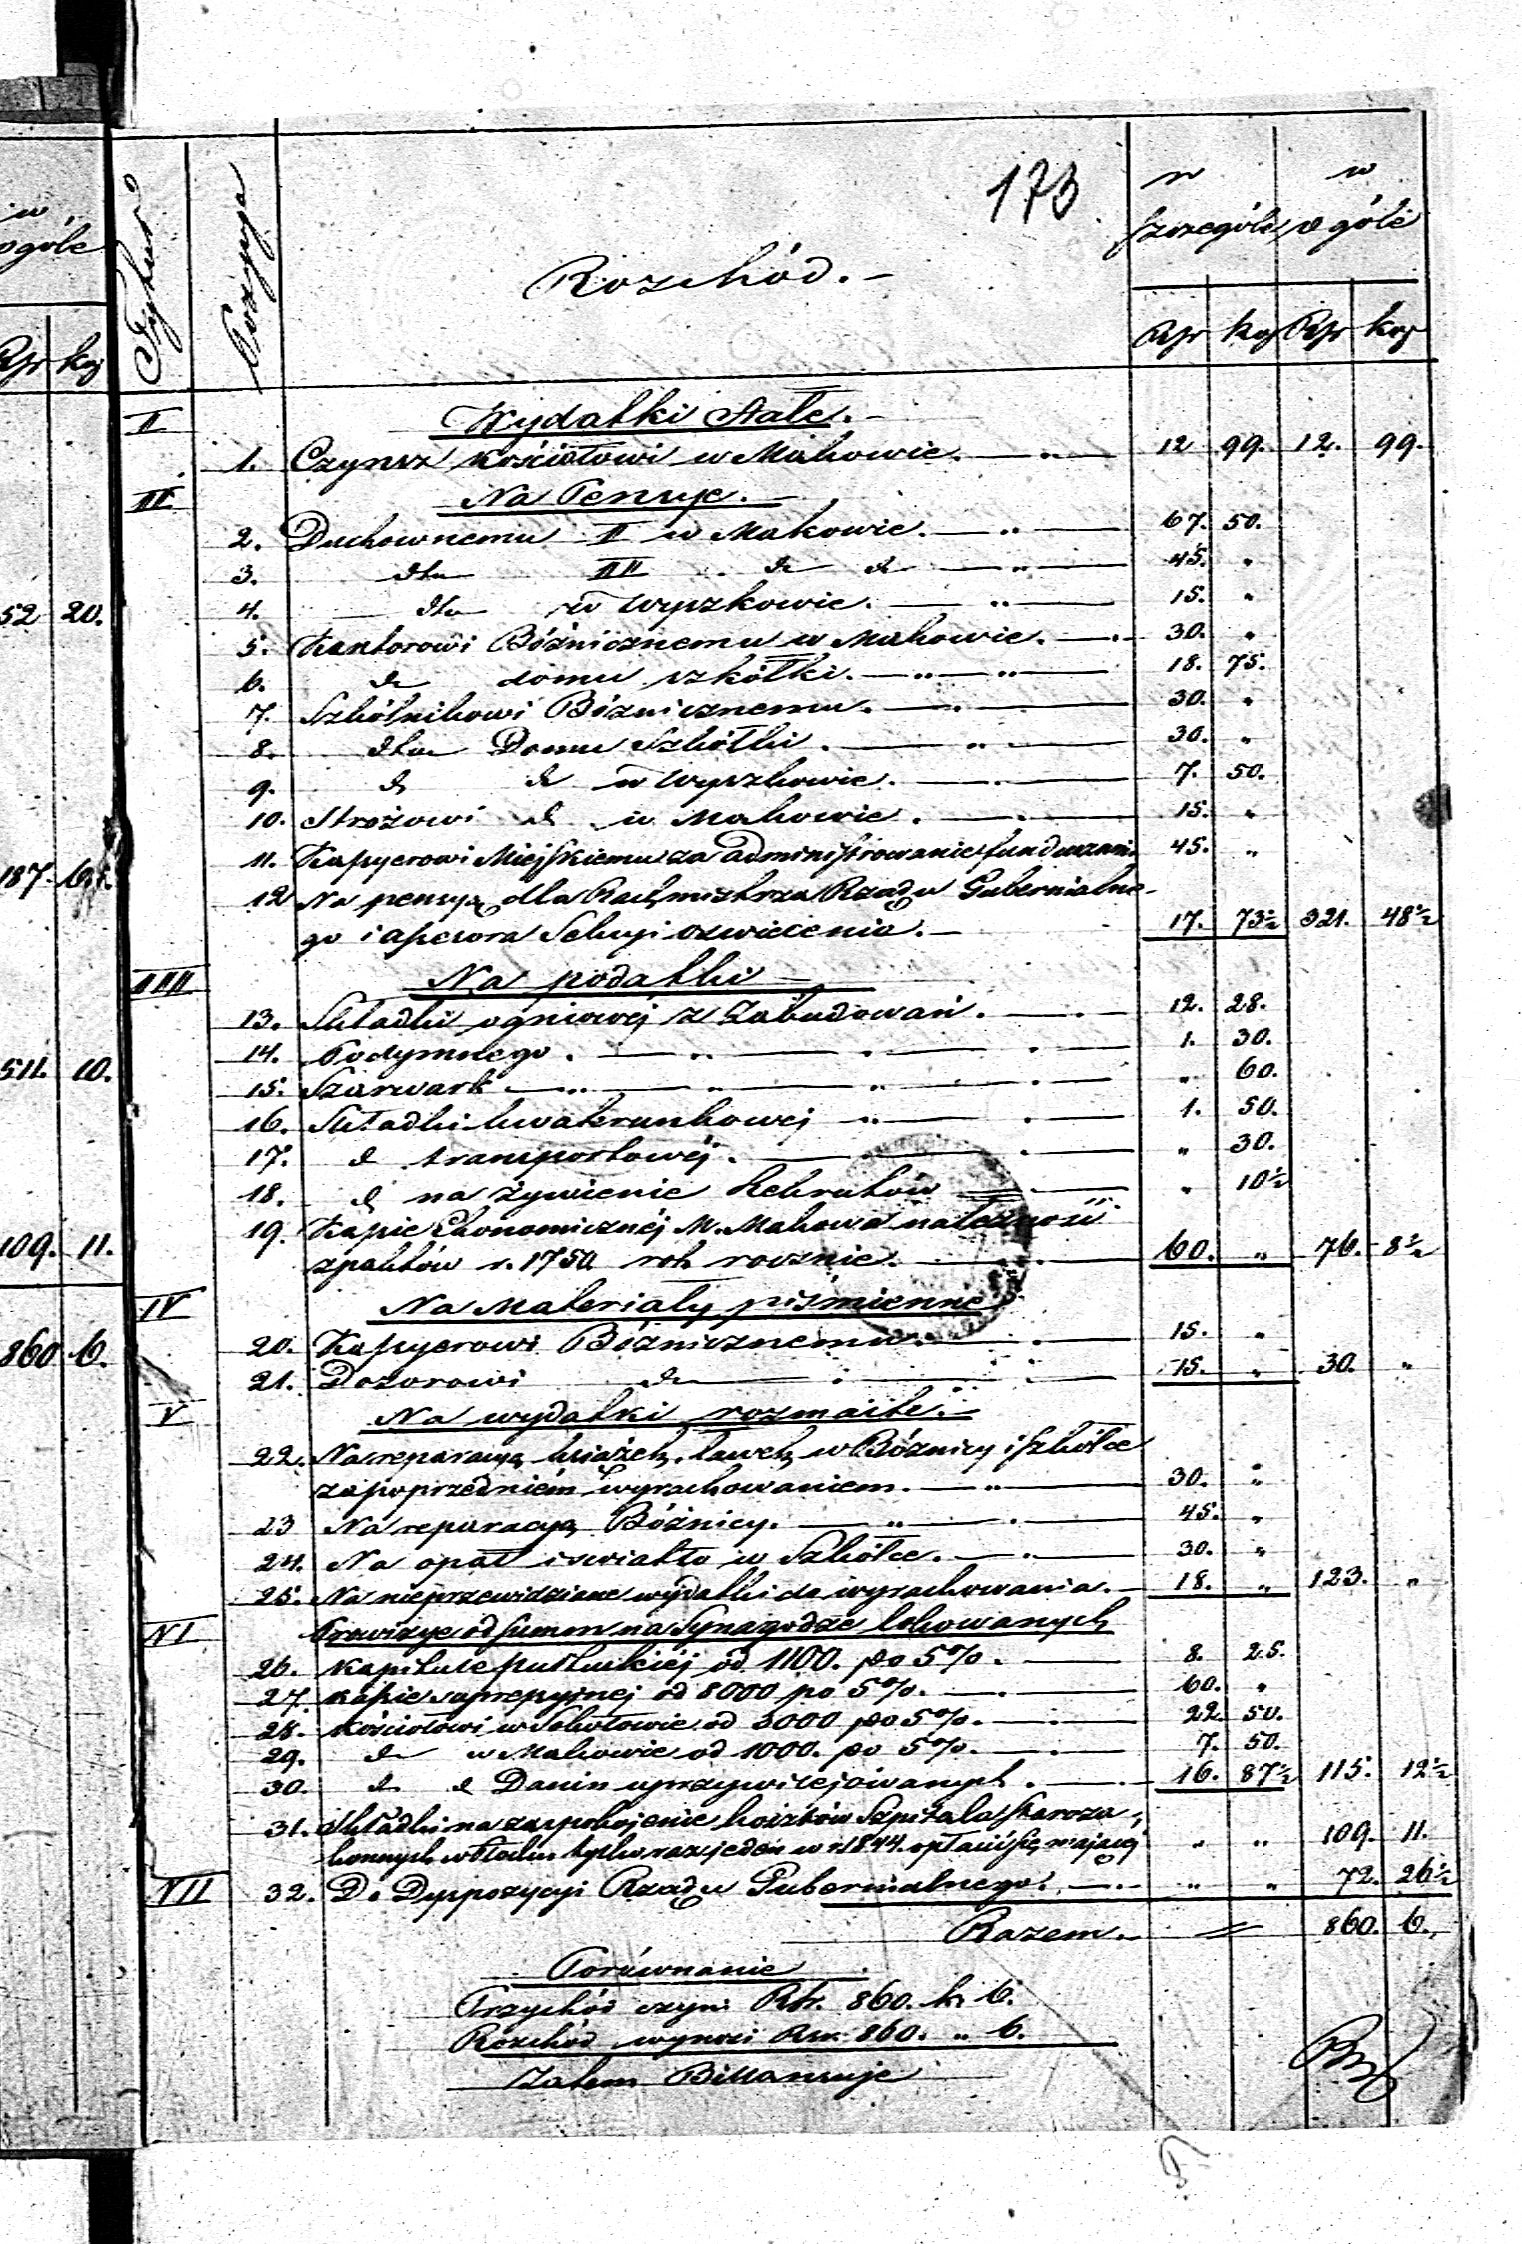 173
w ogóle
Rsr kop
52 20.
187. 64½.
511. 10.
109. 11.
860 6.
Tytuł Pozycya Rozchód. w szczególe w ogóle
Rsr kop Rsr kop
I Wydatki Stałe.
1. Czynsz kościołowi w Makowie. 12 99. 12. 99.
II Na Pensye.
2. Duchownemu II w Makowie. 67. 50.
3. dto III d d 45. "
4. dto w Wyszkowie. 15. "
5. Kantorowi Bóżnicznemu w Makowie. 30. "
6. d domu szkółki. 18. 75.
7. Szkólnikowi Bóżnicznemu. 30. "
8. dto Domu Szkółki. 30. "
9. d d w Wyszkowie. 7. 50.
10. Stróżowi d w Makowie. 15. "
11. Kassyerowi Miejskiemu za administrowanie funduszami. 45. "
12 Na pensyą dla Rachmistrza Rządu Gubernialne-
go i assesora Sekcyi oświecenia. 17. 73½ 321. 48½
III Na podatki
13. Składki ogniowej z Zabudowań. 12. 28.
14. Podymnego. 1. 30.
15. Szarwark " 60.
16. Składki kwaterunkowej 1. 50.
17. d transportowéj. " 30.
18. d na żywienie Rekrutów " 10½
19. Kassie Ekonomicznéj M. Makowa należność
z paktów r. 1750 rok rocznie. 60. " 76. 8½
IV Na Materiały piśmienne
20. Kassyerowi Bóżnicznemu. 15. "
21. Dozorowi d 15. " 30. "
V Na wydatki rozmaite.
22. Na reparacyą książek, ławek w Bóżnicy i szkółce
za poprzedniém wyrachowaniem. 30. "
23 Na reparacyą Bóżnicy. 45. "
24. Na opał i swiatło w Szkółce. 30. "
25. Na nieprzewidziane wydatki do wyrachowania. 18. " 123. "
VI Prowizye od summ na Synagodze lokowanych
26. Kapitule pułtuskiéj od 1100. po 5%. 8. 25.
27. Kassie supresyjnej od 8000 po 5%. 60. "
28. Kościołowi w Sokołowie od 3000 po 5%. 22. 50.
29. d w Makowie od 1000. po 5%. 7. 50.
30. d d Danin uprzywilejowanych. 16. 87½ 115. 12½
31. Składki na zaspokojenie kosztów Szpitala Staroza-
konnych w Płocku tylko raz jeden w r. 1844. opłacić się mającéj " " 109. 11.
VII 32. Do Dyspozycyi Rządu Gubernialnego. " " 72. 26½
Razem. 860. 6.
Porównanie
Przychód czyni Rsr. 860. k. 6.
Rozchód wynosi Rsr. 860. " 6.
Zatem Billansuje